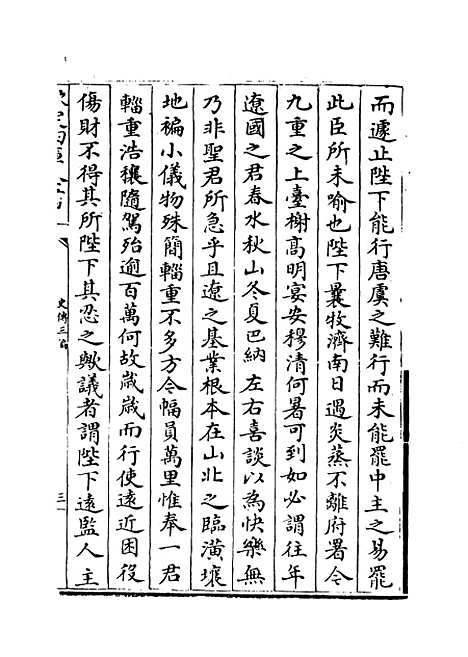 而遽止陛下能行唐虞之難行而未能罷中主之易罷
此臣所未喻也陛下曩牧濟南日遇炎蒸不離府署今
九重之上臺榭高明宴安穆清何暑可到如必謂往年
遼國之君春水秋山冬夏巴納左右喜談以為快樂無
乃非聖君所急乎且遼之基業根本在山北之臨潢壤
地褊小儀物殊簡輜重不多方今幅員萬里惟奉一君
輜重浩穰隨駕殆逾百萬何故歲歲而行使遠近困役
傷財不得其所陛下其忍之歟議者謂陛下遠監人主
史傳三編